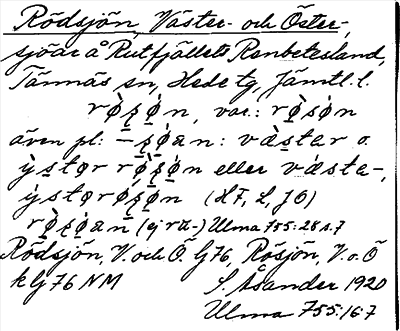 Rödsjön, Väster- och Öster-,
sjöar å Rutfjällets Renbetesland,
Tännäs sn, Hede tg, Jämtl. l.
rø̀ṣø̣n, var.: rø̀sòn
även pl: -ṣø̣an: vàstar o.
ỳstør rø̀ṣø̣n eller vàsta-,
ỳstørø̀ṣø̣n (HF, L, JO)
rø̀ṣø̣an (ej rä-) Ulma 755:28 s.7
Rödsjön, V. och Ö. G76, Rösjön, V. o. Ö
k G 76 NM S. Åsander 1920
Ulma 755:16:7